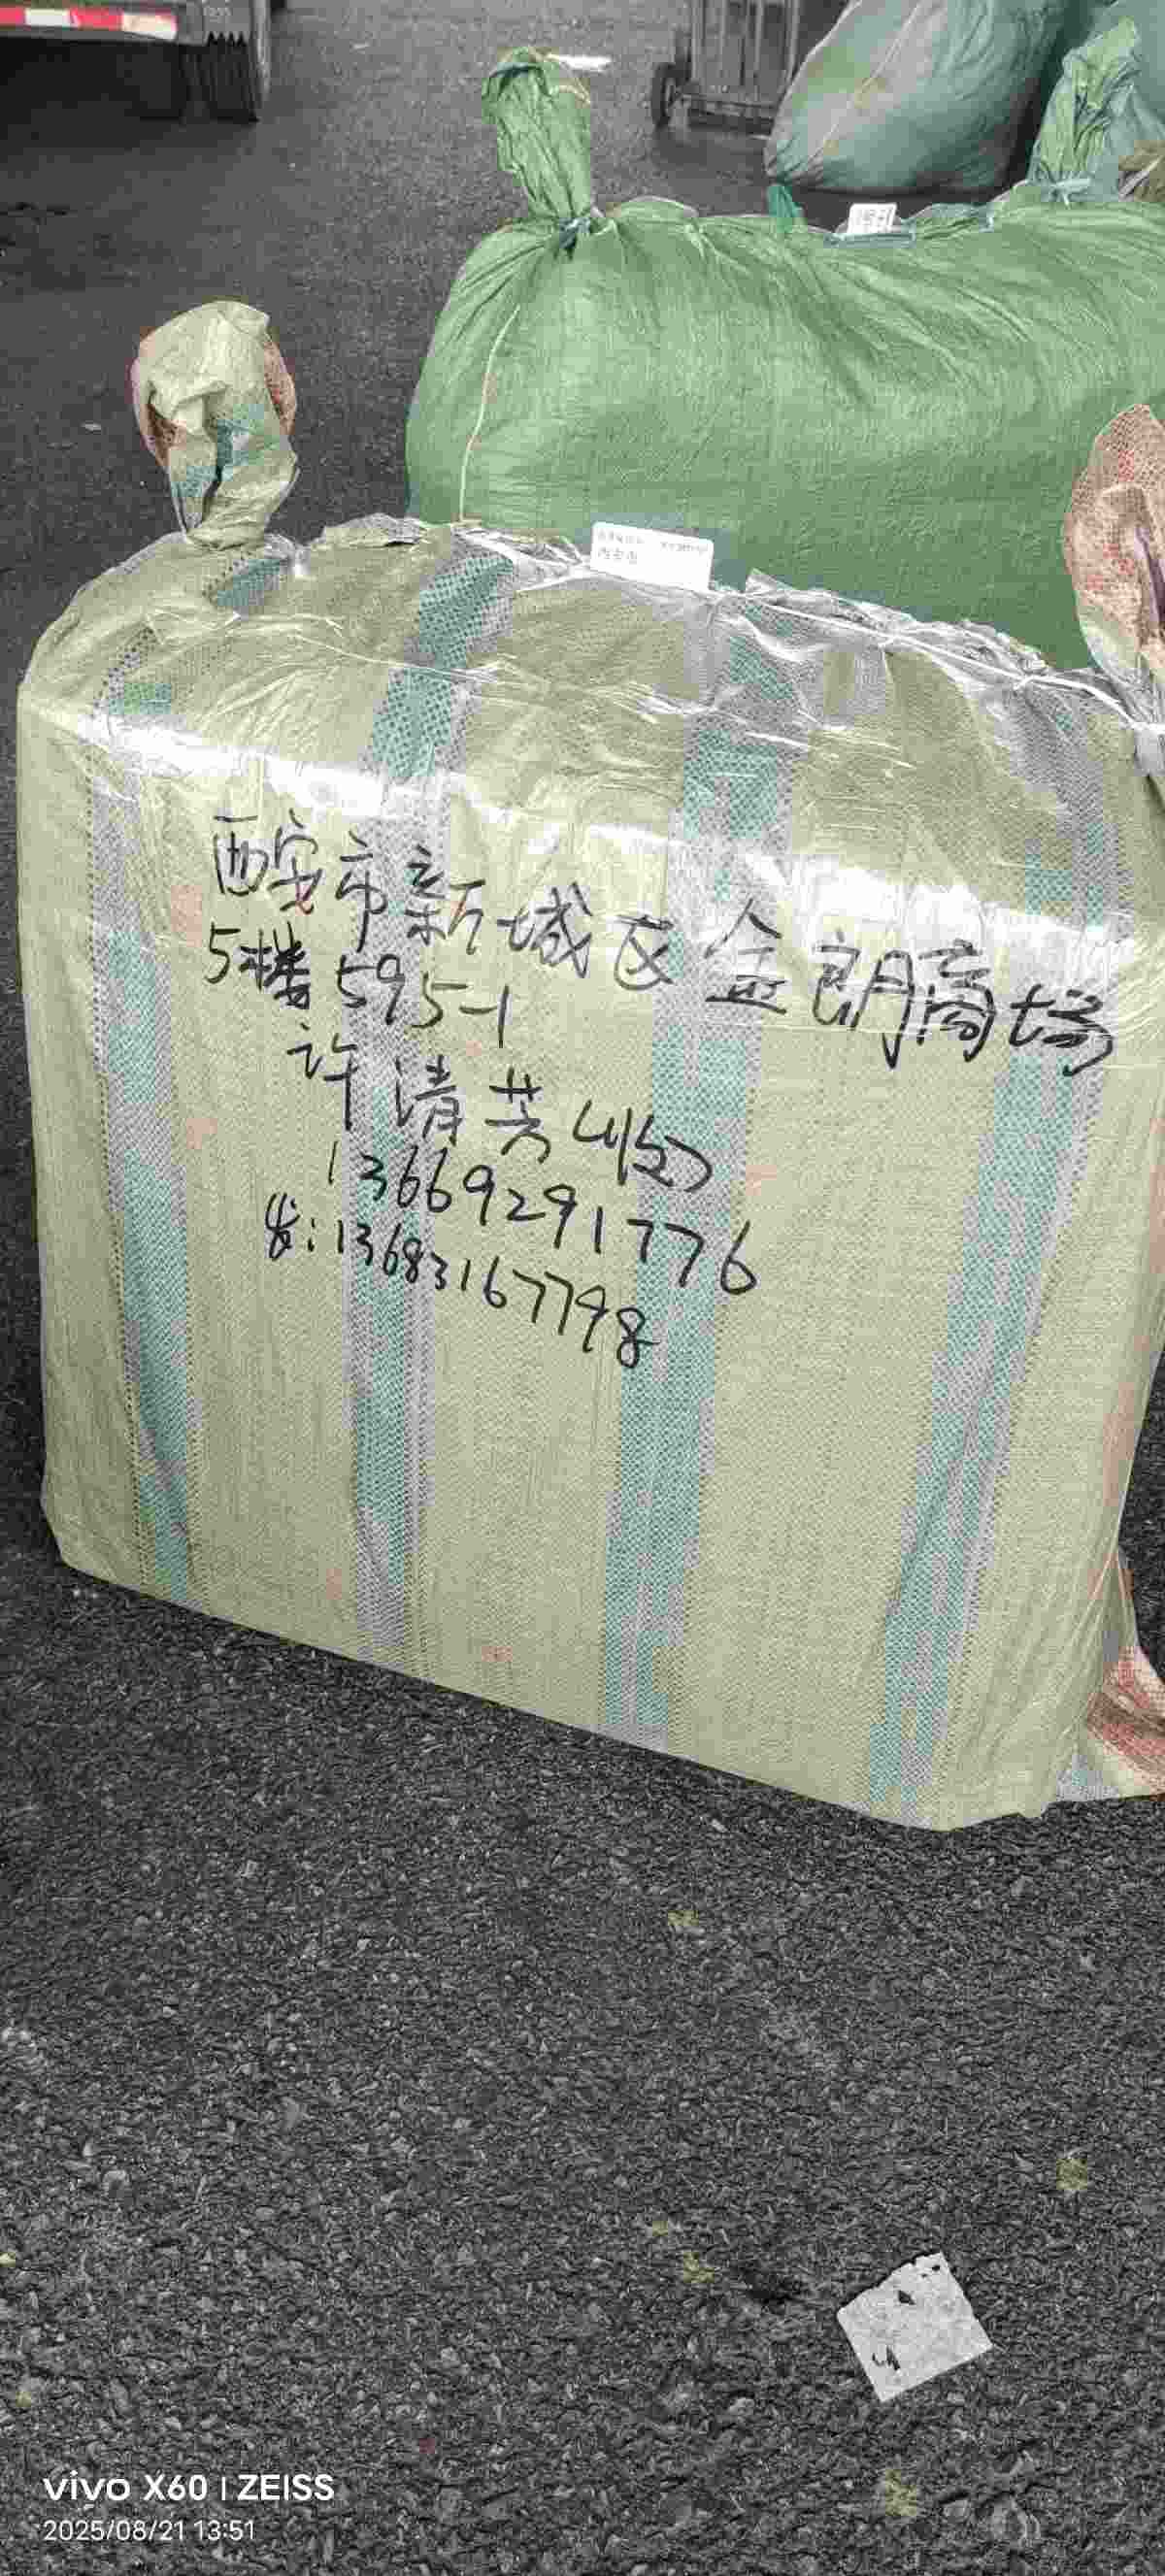 西安市新城区金朗商场
5楼595-1
许清芳(收)
13669291776
发:13683167798
vivo X60 | ZEISS
2025/08/21 13:51